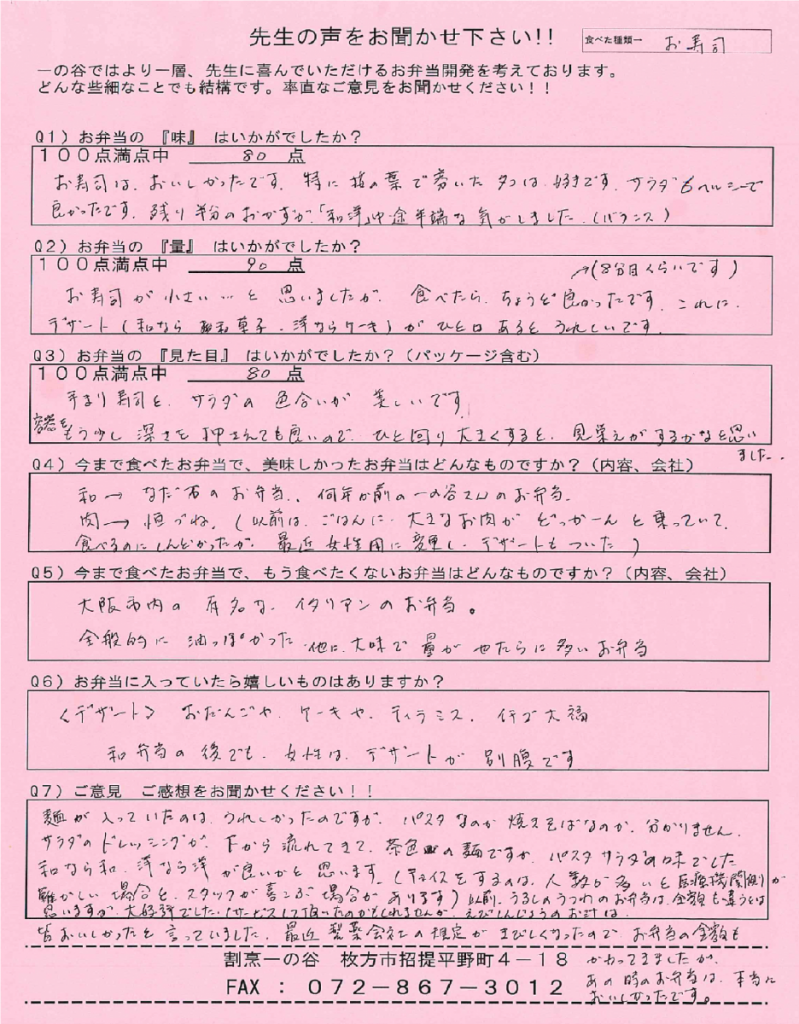 先生の声をお聞かせ下さい!!
食べた種類→ お寿司
一の谷ではより一層、先生に喜んでいただけるお弁当開発を考えております。
どんな些細なことでも結構です。率直なご意見をお聞かせください!!
Q1) お弁当の 『味』 はいかがでしたか?
100点満点中 80 点
お寿司は、おいしかったです。特に笹の葉で巻いたタコは、好きです。サラダもヘルシーで
良かったです。残り半分のおかずが、「和洋」中途半端な気がしました。(バランス)
Q2) お弁当の 『量』 はいかがでしたか?
100点満点中 90 点
→(8分目くらいです)
お寿司が小さい…と思いましたが、食べたら、ちょうど良かったです。これに、
デザート(和なら 和菓子、洋ならケーキ)がひと口あると、うれしいです。
Q3) お弁当の 『見た目』 はいかがでしたか?(パッケージ含む)
100点満点中 80 点
手まり寿司と、サラダの色合いが美しいです。
容器をもう少し深さを押さえても良いので、ひと回り大きくすると、見栄えがするかなと思い
ました。
Q4) 今まで食べたお弁当で、美味しかったお弁当はどんなものですか?(内容、会社)
和→なだ万のお弁当、何年か前の一の谷さんのお弁当。
肉→恒づね。(以前は、ごはんに、大きなお肉がどっかーんと乗っていて、
食べるのにしんどかったが、最近女性用に変更し、デザートもついた)
Q5) 今まで食べたお弁当で、もう食べたくないお弁当はどんなものですか?(内容、会社)
大阪市内の有名な、イタリアンのお弁当。
全般的に油っぽかった。他に、大味で量がやたらに多いお弁当
Q6) お弁当に入っていたら嬉しいものはありますか?
〈デザート〉 おだんごや、ケーキや、ティラミス、イチゴ大福
和弁当の後でも、女性は、デザートが別腹です
Q7) ご意見 ご感想をお聞かせください!!
麺が入っていたのは、うれしかったのですが、パスタなのか焼そばなのか、分かりません。
サラダのドレッシングが、下から流れてきて、茶色の麺ですが、パスタサラダの味でした
和なら和、洋なら洋が良いかと思います。(チョイスをするのは、人数が多いと医療機関側が
難かしい場合と、スタッフが喜こぶ場合があります)以前、うるしのうつわのお弁当は、金額も違うとは
思いますが、大好評でした!サービスして頂いたのかもしれませんが、えびしんじょうのお汁は、
皆おいしかったと言っていました。最近製薬会社の規定がきびしくなったので、お弁当の金額も
かわってきましたが、
あの時のお弁当は、本当に
おいしかったです。
割烹一の谷 枚方市招提平野町4-18
FAX : 072-867-3012